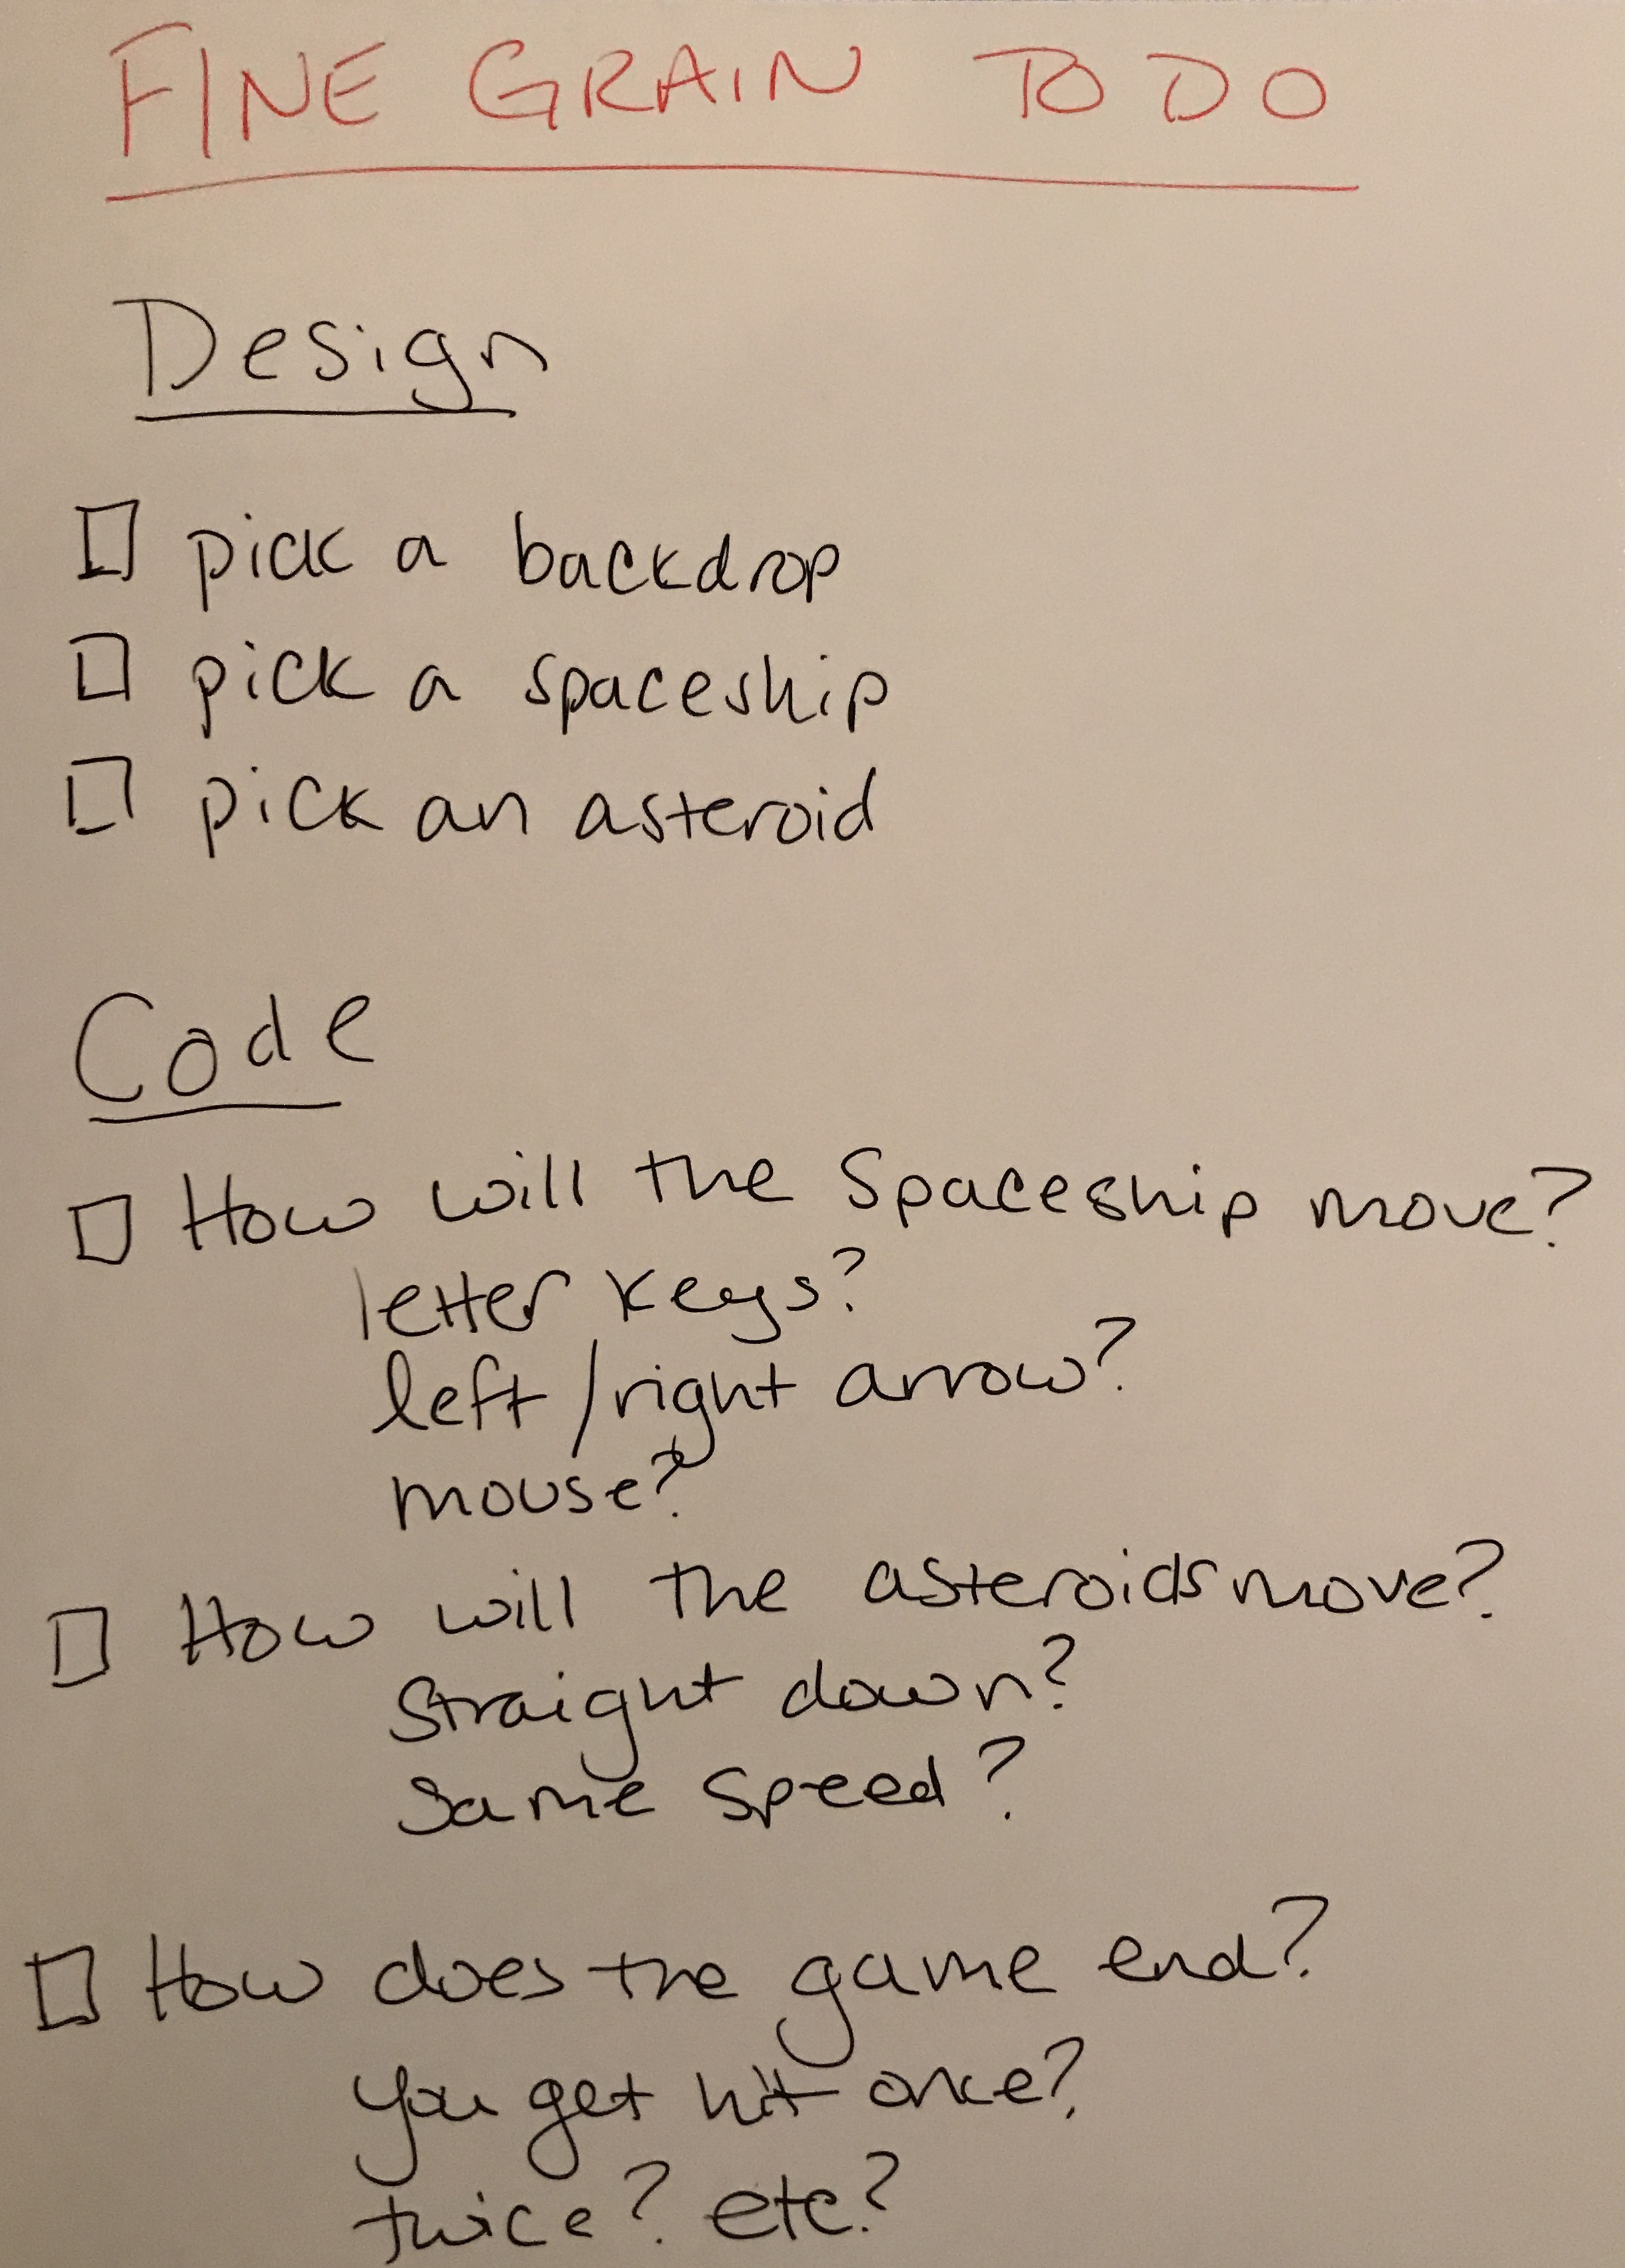 FINE GRAIN TO DO
Design
pick a backdrop
pick a spaceship
pick an asteroid
Code
How will the Spaceship move?
letter keys?
left/right arrow?
mouse?
How will the asteroids move?
Straight down?
Same Speed?
How does the game end?
you get hit once?
twice? etc?